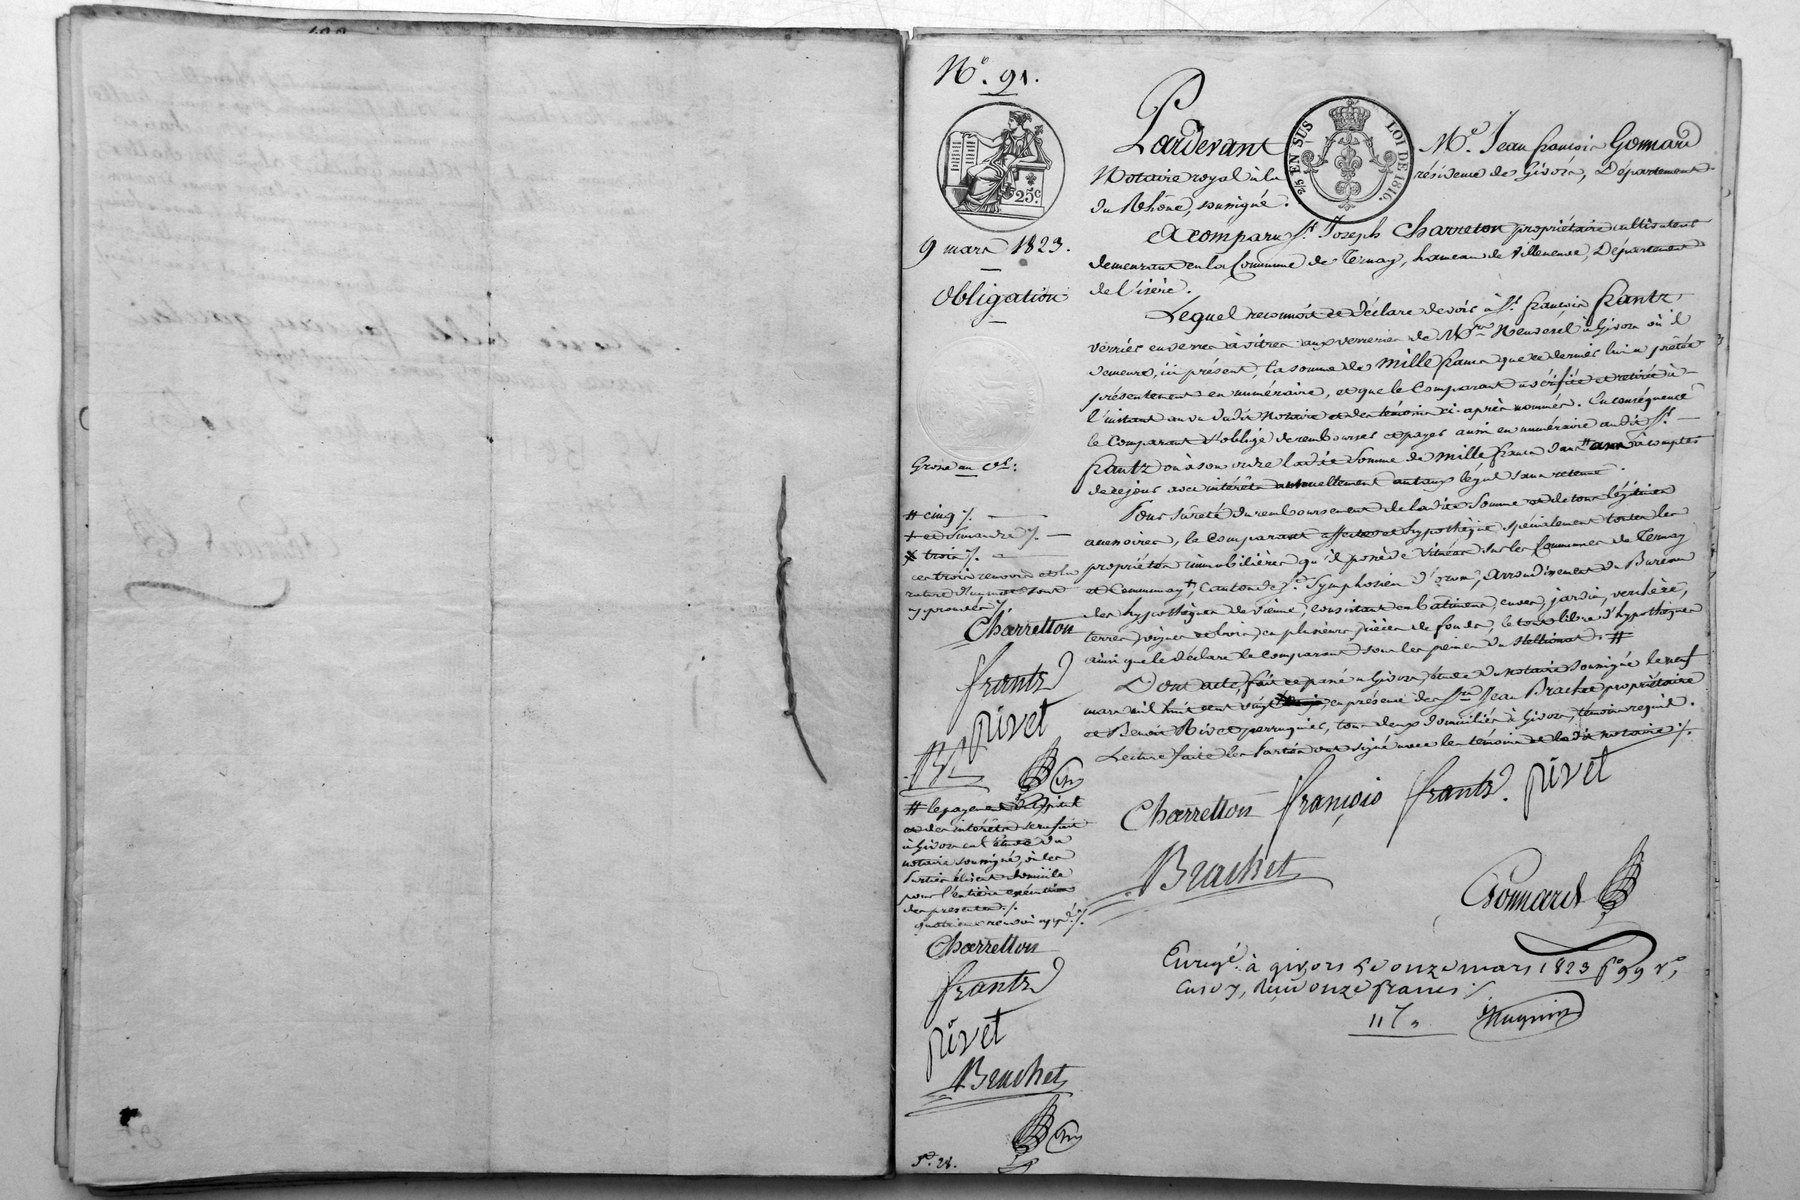 N.° 91.
25c
9 mars 1823.
Obligation
Grosse au
# cinq ./.
+ et Simandre ./.
x trois ./.
ces trois renvois et la
rature d'un mot sont
approuvés ./.
Charretton
frantz
rivet
# le payement
et des intérêts sera fait
à Givors en l'étude du
notaire soussigné, où les
Parties élisent domicile
pour l'entière exécution
des présentes ./.
quatrieme renvoi app.é ./.
Charretton
frantz
rivet
Brachet
Pardevant M.e Jean françois Gonnard
EN SUS LOI DE 1816.
Notaire royal à la résidence de Givors, Département
du Rhône, soussigné.
A comparu S.r Joseph Charreton propriétaire cultivateur
demeurant en la Commune de Ternay, hameau de Villeneuve, Département
de l'isère.
Lequel reconnoit et déclare devoir à S.r françois frantz
verrier en verre à vitres aux verreries de M.rs Neuvesel à Givors où il
demeure, ici présent, la somme de Mille francs que ce dernier lui a prêtée
présentement en numéraire, et que le Comparant a vérifiée et retirée à
l'instant au vu dudit Notaire et des témoins ci-après nommés. En conséquence
le Comparant s'oblige de rembourser et payer aussi en numéraire audit S.r
frantz ou à son ordre ladite Somme de Mille francs dans # ans à compter
de ce jour avec intérêts annuellement au taux légal sans retenue.
Pour sûreté du remboursement de ladite Somme et de tous légitimes
accessoires, le Comparant affecte et hypothèque spécialement toutes les
propriétés immobilières qu'il possède situées sur les Communes de Ternay
et Communay +, Canton de S.t Symphorien d'ozon, Arrondissement du Bureau
des hypothèques de Vienne, consistant en bâtiment, cuves, jardin, verchère,
terres, vignes et bois en plusieurs pièces de fonds, le tout libre d'hypothèques
ainsi que le déclare le comparant sous les peines du stellionat. #
Dont acte, fait et passé à Givors, étude du notaire soussigné le neuf
mars mil huit cent vingt x en présence des S.rs Jean Brachet propriétaire
et Benoit Rivet perruquier, tous deux domiciliés à Givors, témoins requis.
Lecture faite les Parties ont signé avec les témoins et ledit notaire ./.
Charretton françois frantz. rivet
Brachet
Gonnard
Enregé. à givors le onze mars 1823 f.o 99 v.o
Case 7, Reçu onze francs ./.